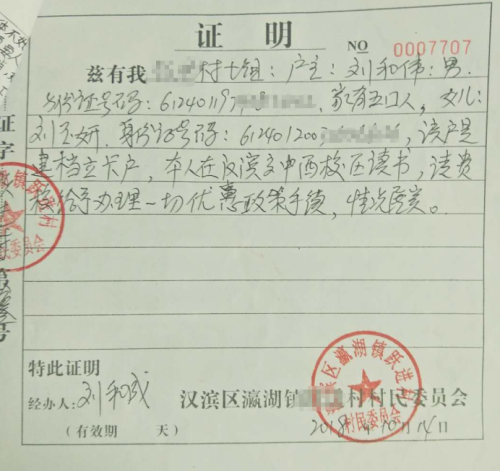 证明
NO 0007707
兹有我村七组:户主:刘和伟:男.
身份证号码:612401197,家有五口人,女儿:
刘玉妍.身份证号码:612401200,该户是
建档立卡户,本人在汉滨文中西校区读书,请贵
校给予办理一切优惠政策手续,情况属实。
特此证明
经办人:刘和成
汉滨区瀛湖镇村民委员会
(有效期 天)
2018年10月14日
汉滨区瀛湖镇跃进村
村民委员会
瀛湖镇跃进村
民委员会
证字第号